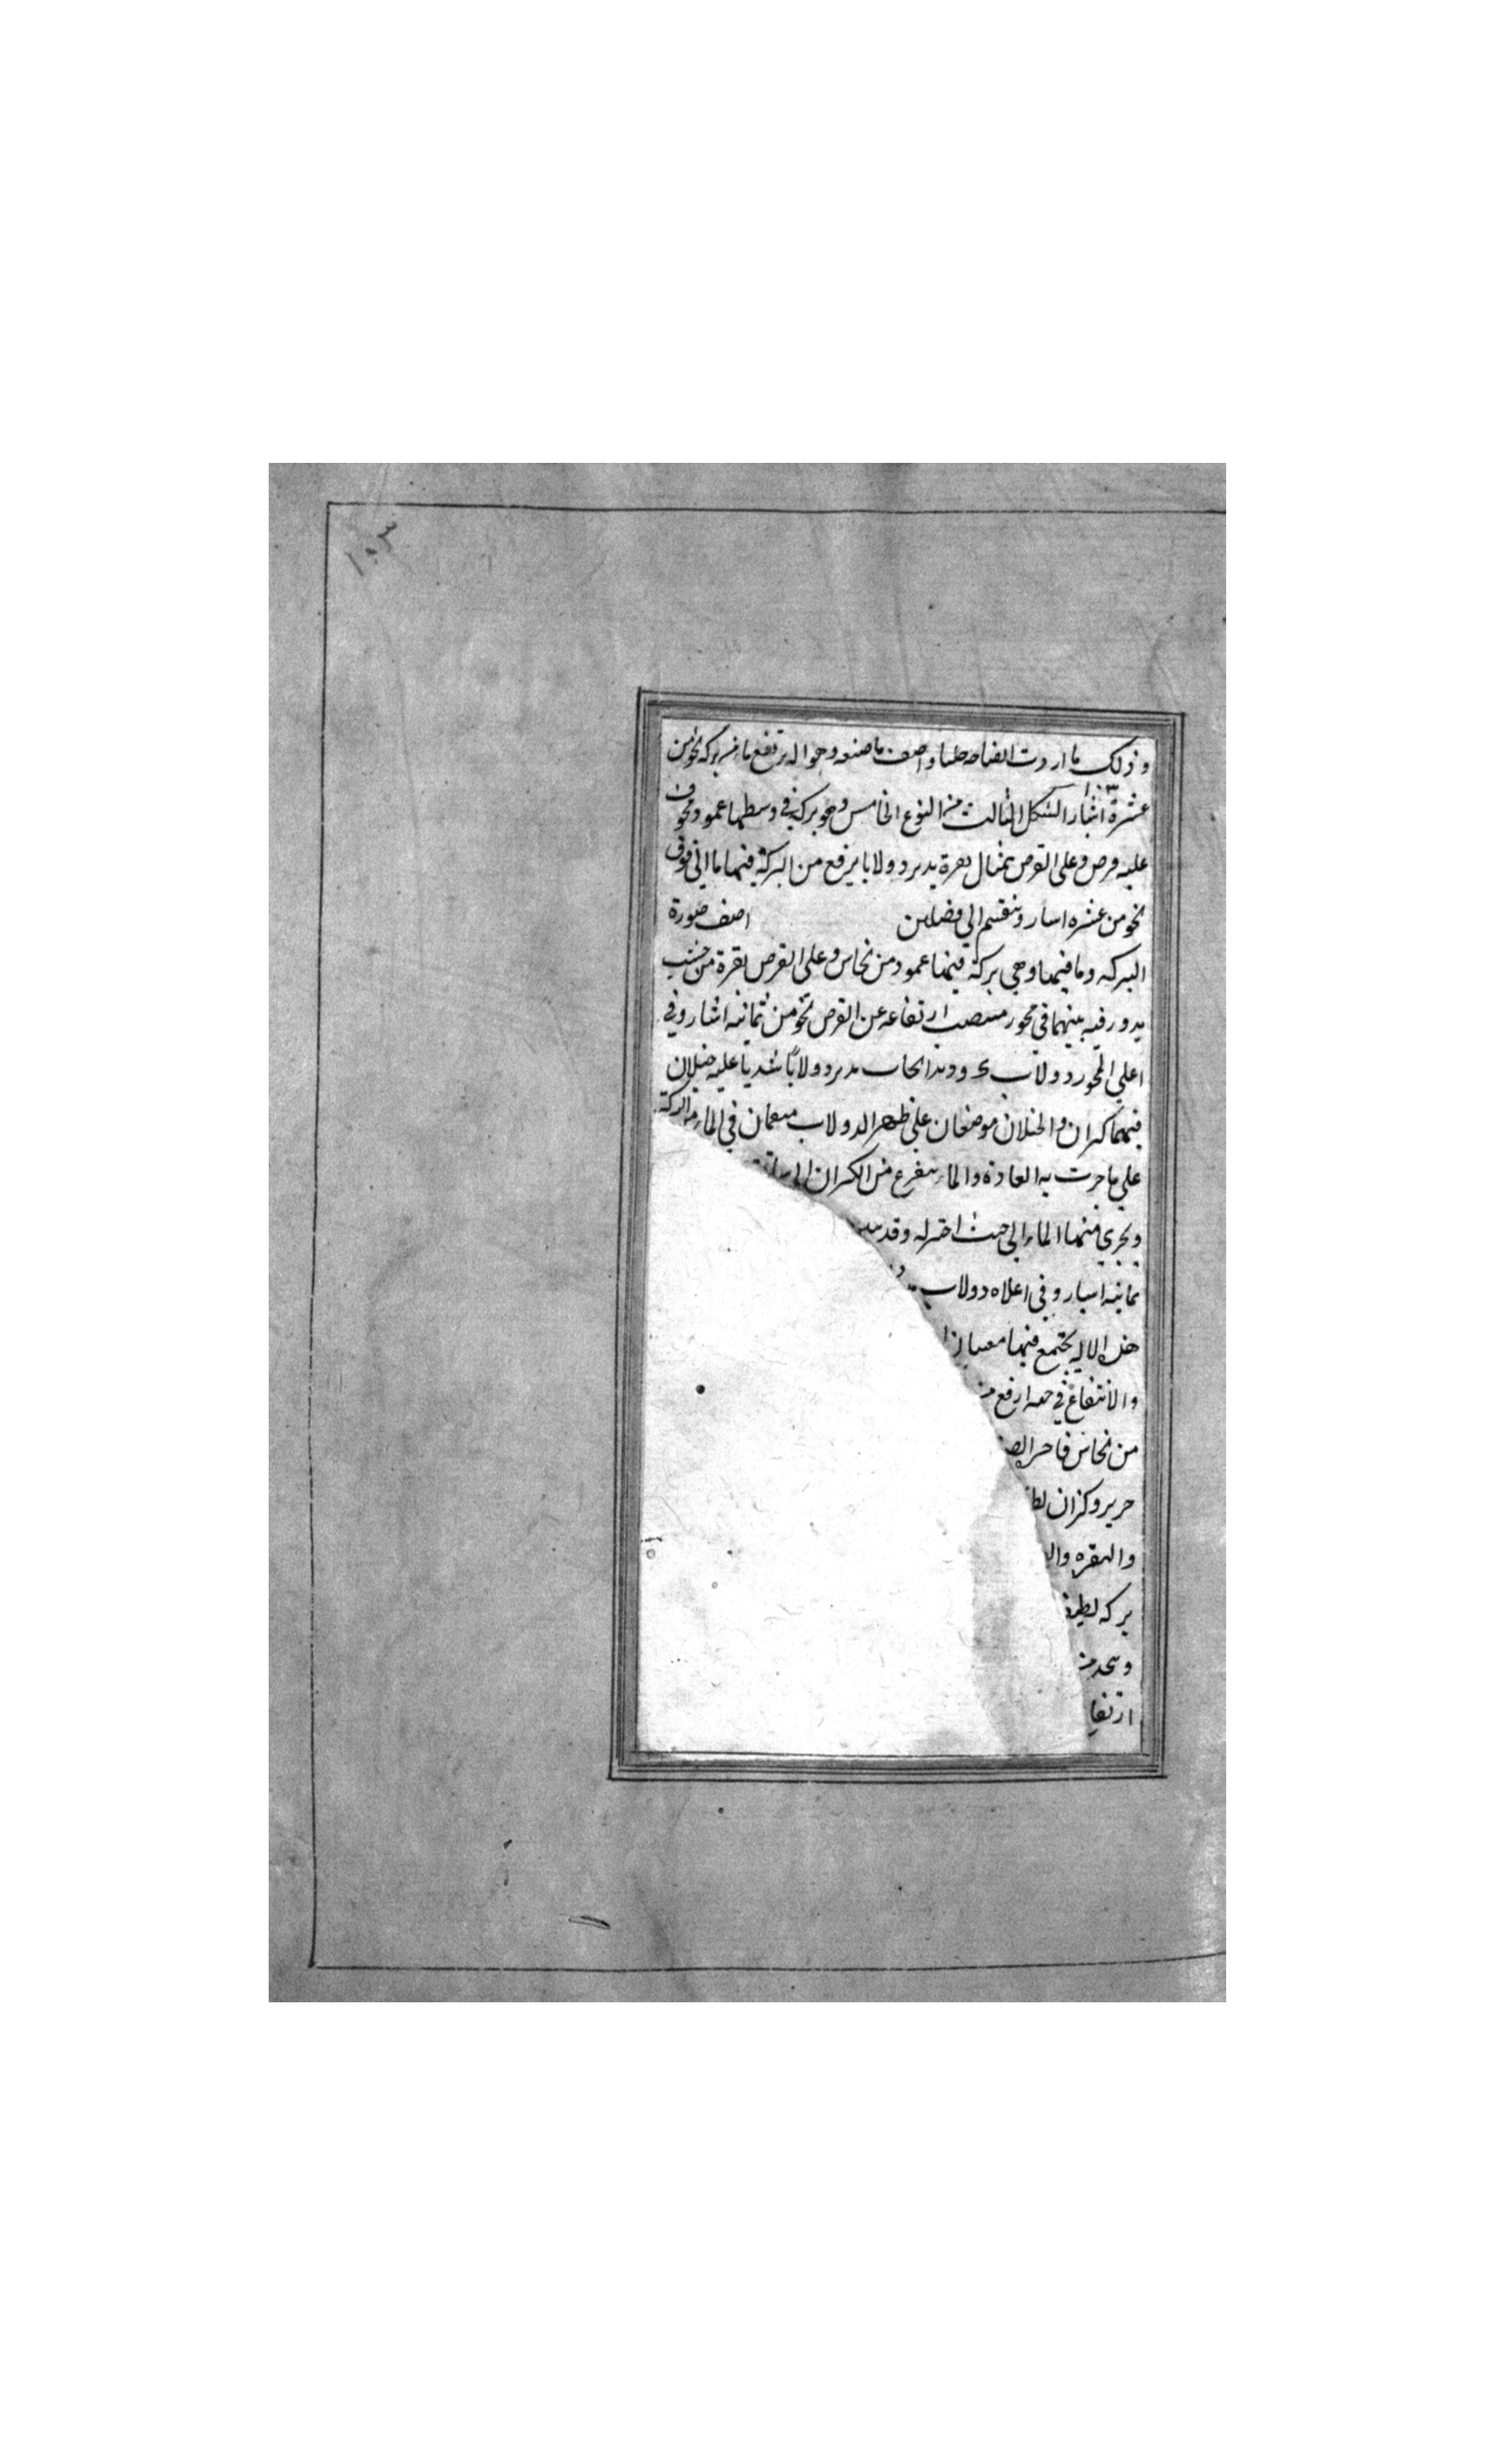 ١٠٣
وذلك ما اردت ايضاحه جليا واصف ما صنعه وهو اله ترفع ماء من بركه نحو من
عشرة اشبار الشكل الثالث من النوع الخامس وهو بركة في وسطها عمود مجوف
عليه قرص وعلى القرص تمثال بقرة يدير دولابا يرفع من البركة فيها ما الى فوق
نحو من عشره اسار وينقسم الى فصلين اصف صورة
البركه وما فيها وهي بركة فيها عمود من نحاس وعلى القرص بقرة من خشب
يدور فيه بينهما في محور منتصب ارتفاعه عن القرص نحو من ثمانيه اشبار وفي
اعلي المحور دولاب يدير دولابا سنديا عليه حبلان
فيهما كيزان والحبلان موضعان علي ظهر الدولاب في الماء من البركة
علي ما جرت به العادة والماء يتفرغ من الكيزان الى
ويجري فيها الماء الى حيث اختير له وقد
ثمانيه اسبار وفي اعلاه دولاب
هذه الاله يجتمع فيها
والانتفاع في ارفع من
من نحاس فاخر
حرير وكزان لط
والبقره وال
بركه لطيفه
من
ارتفا